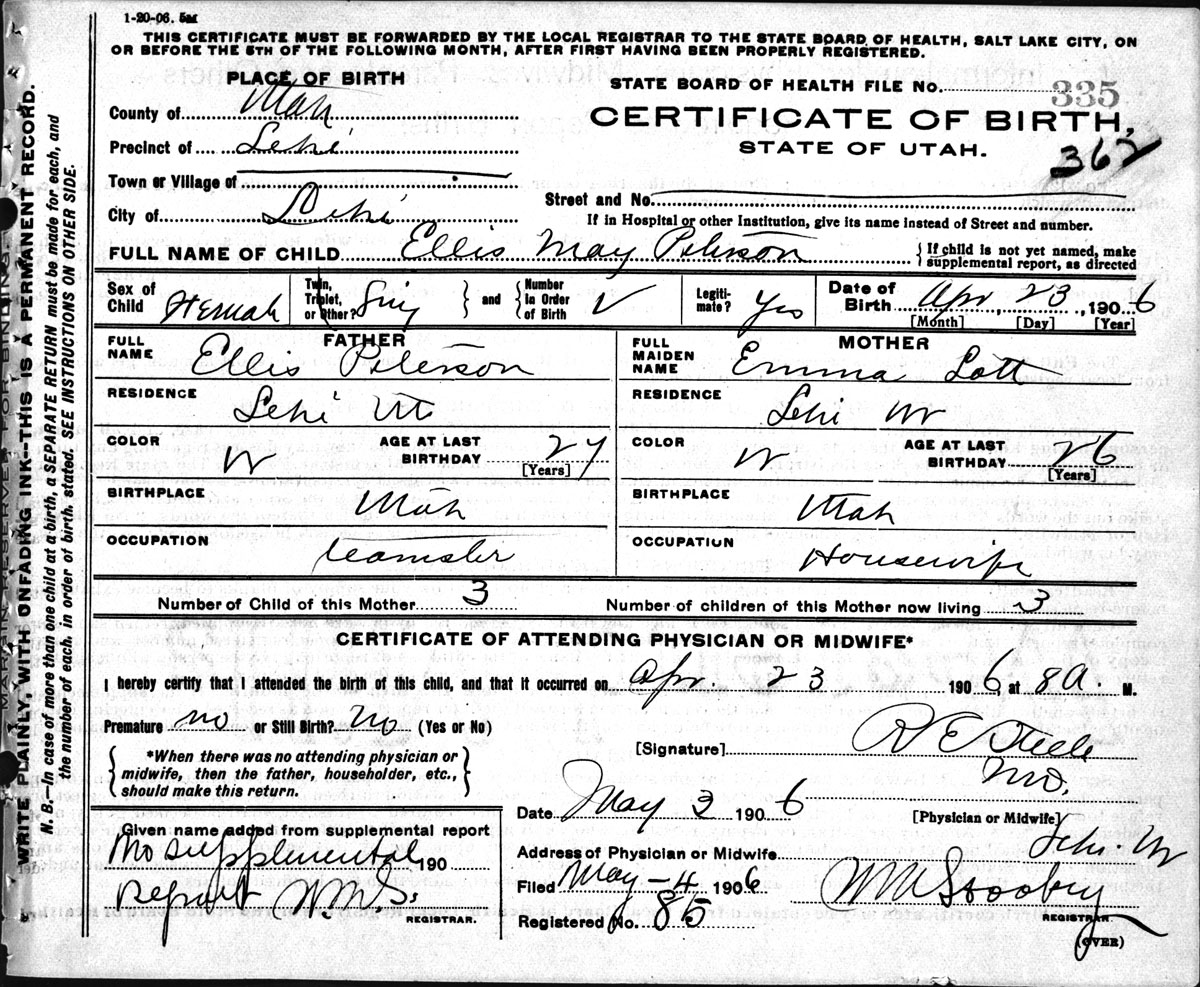 1-20-06. 5M
THIS CERTIFICATE MUST BE FORWARDED BY THE LOCAL REGISTRAR TO THE STATE BOARD OF HEALTH, SALT LAKE CITY, ON
OR BEFORE THE 5TH OF THE FOLLOWING MONTH, AFTER FIRST HAVING BEEN PROPERLY REGISTERED.
PLACE OF BIRTH
County of Utah
Precinct of Lehi
Town or Village of
City of Lehi
STATE BOARD OF HEALTH FILE NO. 335
CERTIFICATE OF BIRTH,
STATE OF UTAH.
362
Street and No.
If in Hospital or other Institution, give its name instead of Street and number.
FULL NAME OF CHILD Ellis May Peterson { If child is not yet named, make
supplemental report, as directed
Sex of Child Female
Twin, Triplet, or Other? Sing } and { Number in Order of Birth
Legitimate? Yes
Date of Birth Apr 23, 1906
[Month] [Day] [Year]
FATHER
FULL NAME Ellis Peterson
RESIDENCE Lehi Ut
COLOR W AGE AT LAST BIRTHDAY 27 [Years]
BIRTHPLACE Utah
OCCUPATION teamster
MOTHER
FULL MAIDEN NAME Emma Lott
RESIDENCE Lehi Ut
COLOR W AGE AT LAST BIRTHDAY 26 [Years]
BIRTHPLACE Utah
OCCUPATION Housewife
Number of Child of this Mother 3 Number of children of this Mother now living 3
CERTIFICATE OF ATTENDING PHYSICIAN OR MIDWIFE*
I hereby certify that I attended the birth of this child, and that it occurred on Apr 23 1906, at 8 A. M.
Premature no or Still Birth? No (Yes or No)
{ *When there was no attending physician or
midwife, then the father, householder, etc.,
should make this return. }
[Signature] R E Steele
MD.
Date May 3 1906 [Physician or Midwife]
Address of Physician or Midwife Lehi. Ut
Filed May-4 1906
REGISTRAR.
Registered No. 85
(OVER)
Given name added from supplemental report
No supplemental 190
report W.M.S.
REGISTRAR.
WRITE PLAINLY, WITH UNFADING INK--THIS IS A PERMANENT RECORD.
N. B.—In case of more than one child at a birth, a SEPARATE RETURN must be made for each, and
the number of each, in order of birth, stated. SEE INSTRUCTIONS ON OTHER SIDE.